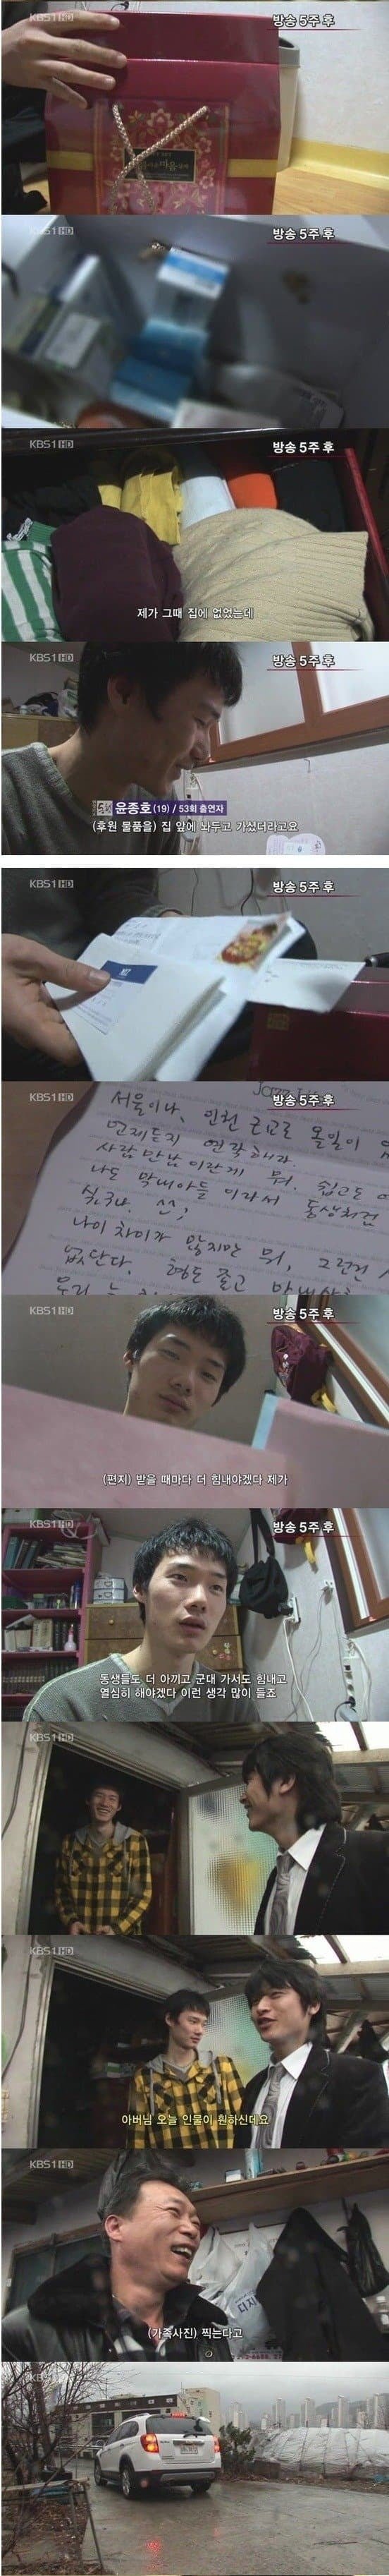 KBS1 HD
방송 5주 후
마음
KBS1 HD
방송 5주 후
KBS1 HD
방송 5주 후
제가 그때 집에 없었는데
KBS1 HD
방송 5주 후
윤종호(19) / 53회 출연자
(후원 물품을) 집 앞에 놔두고 가셨더라고요
KBS1 HD
방송 5주 후
KBS1 HD
방송 5주 후
서울이나, 인천 근교로 올일이
언제든지 연락해라.
사람 만남이란게 뭐. 쉽고도
나도 막내아들 이라서 동생처럼
싶구나. ^^;
나이 차이가 많지만 뭐, 그런건
없단다. 형도 좋고
우리
KBS1 HD
방송 5주 후
(편지) 받을 때마다 더 힘내야겠다 제가
KBS1 HD
방송 5주 후
동생들도 더 아끼고 군대 가서도 힘내고
열심히 해야겠다 이런 생각 많이 들죠
KBS1 HD
KBS1 HD
아버님 오늘 인물이 훤하신데요
KBS1 HD
디지
(가족사진) 찍는다고
KBS1 HD